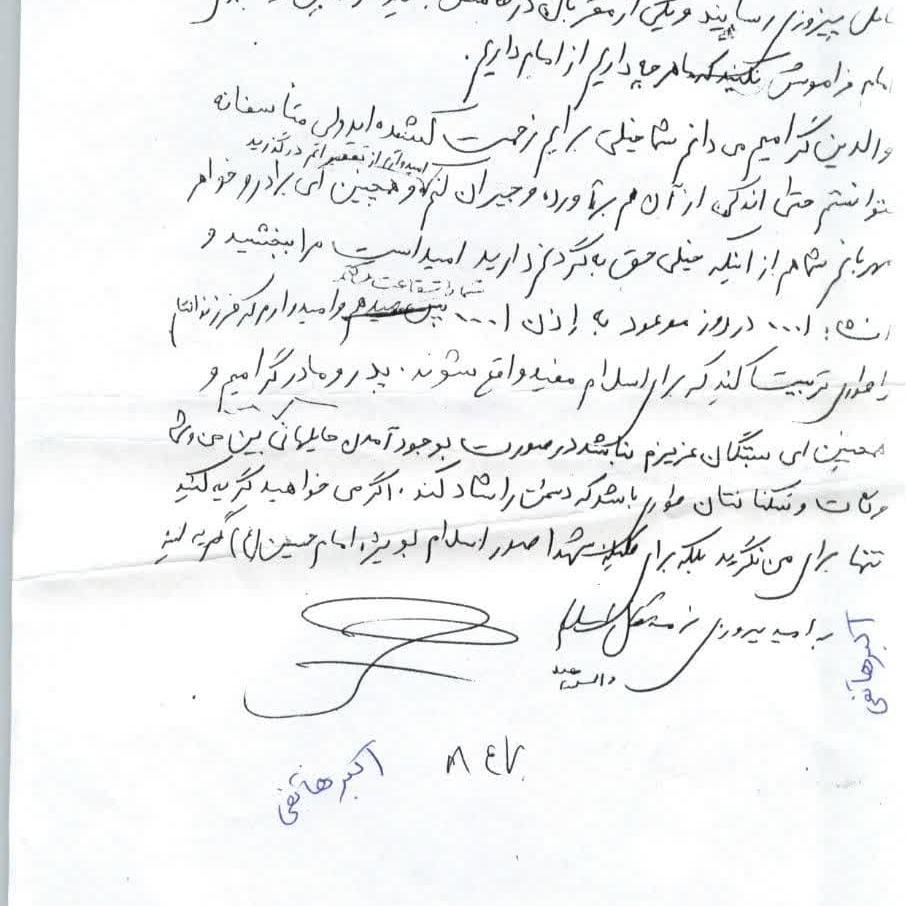 پیروزی رسانید و یکی از
امام فراموش نکنید که ما هر چه داریم از امام داریم.
والدین گرامیم می دانم شما خیلی برایم زحمت کشیده اید ولی متأسفانه
امیدوارم از تقصیراتم درگذرید
نتوانستم حتی اندکی از آن هم برآورده و جبران کنم و همچنین ای برادر و خواهر
مهربانم شما هم از اینکه خیلی حق به گردنم دارید امید است مرا ببخشید و
شما را شفاعت
انشاء ا... در روز موعود به إذن ا... و امیدوارم که فرزندانتان
را طوری تربیت کنید که برای اسلام مفید واقع شوند. پدر و مادر گرامیم و
همچنین ای بستگان عزیزم در صورت بوجود آمدن بین من و شما
حرکات و سکناتتان طوری باشد که دشمن را شاد نکند. اگر می خواهید گریه کنید
تنها برای من نگریید بلکه برای شهدا صدر اسلام بویژه امام حسین (ع) گریه کنید
به امید پیروزی اسلام
والسلام
اکبر هاتفی
اکبر هاتفی